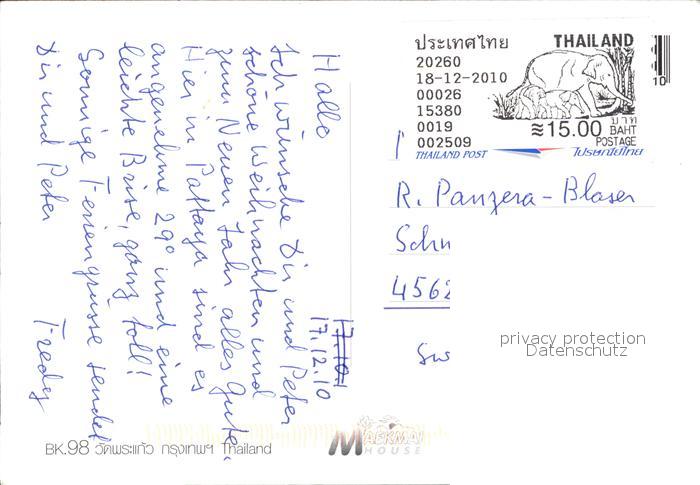 Hallo
Ich wünsche Dir und Peter
schöne Weihnachten und
zum Neuen Jahr alles Gute.
Hier in Pattaya sind es
angenehme 29° und eine
leichte Brise, ganz toll!
Sonnige Feriengrüsse sendet
Dir und Peter Fredy
17.10.1
17.12.10
ประเทศไทย THAILAND
20260
18-12-2010
00026
15380
0019
002509
≋15.00 บาท BAHT
POSTAGE
THAILAND POST ไปรษณีย์ไทย
10
R. Panzera-Blaser
Schu
4562
Sw
privacy protection
Datenschutz
MAEKMAI
HOUSE
BK.98 วัดพระแก้ว กรุงเทพฯ Thailand